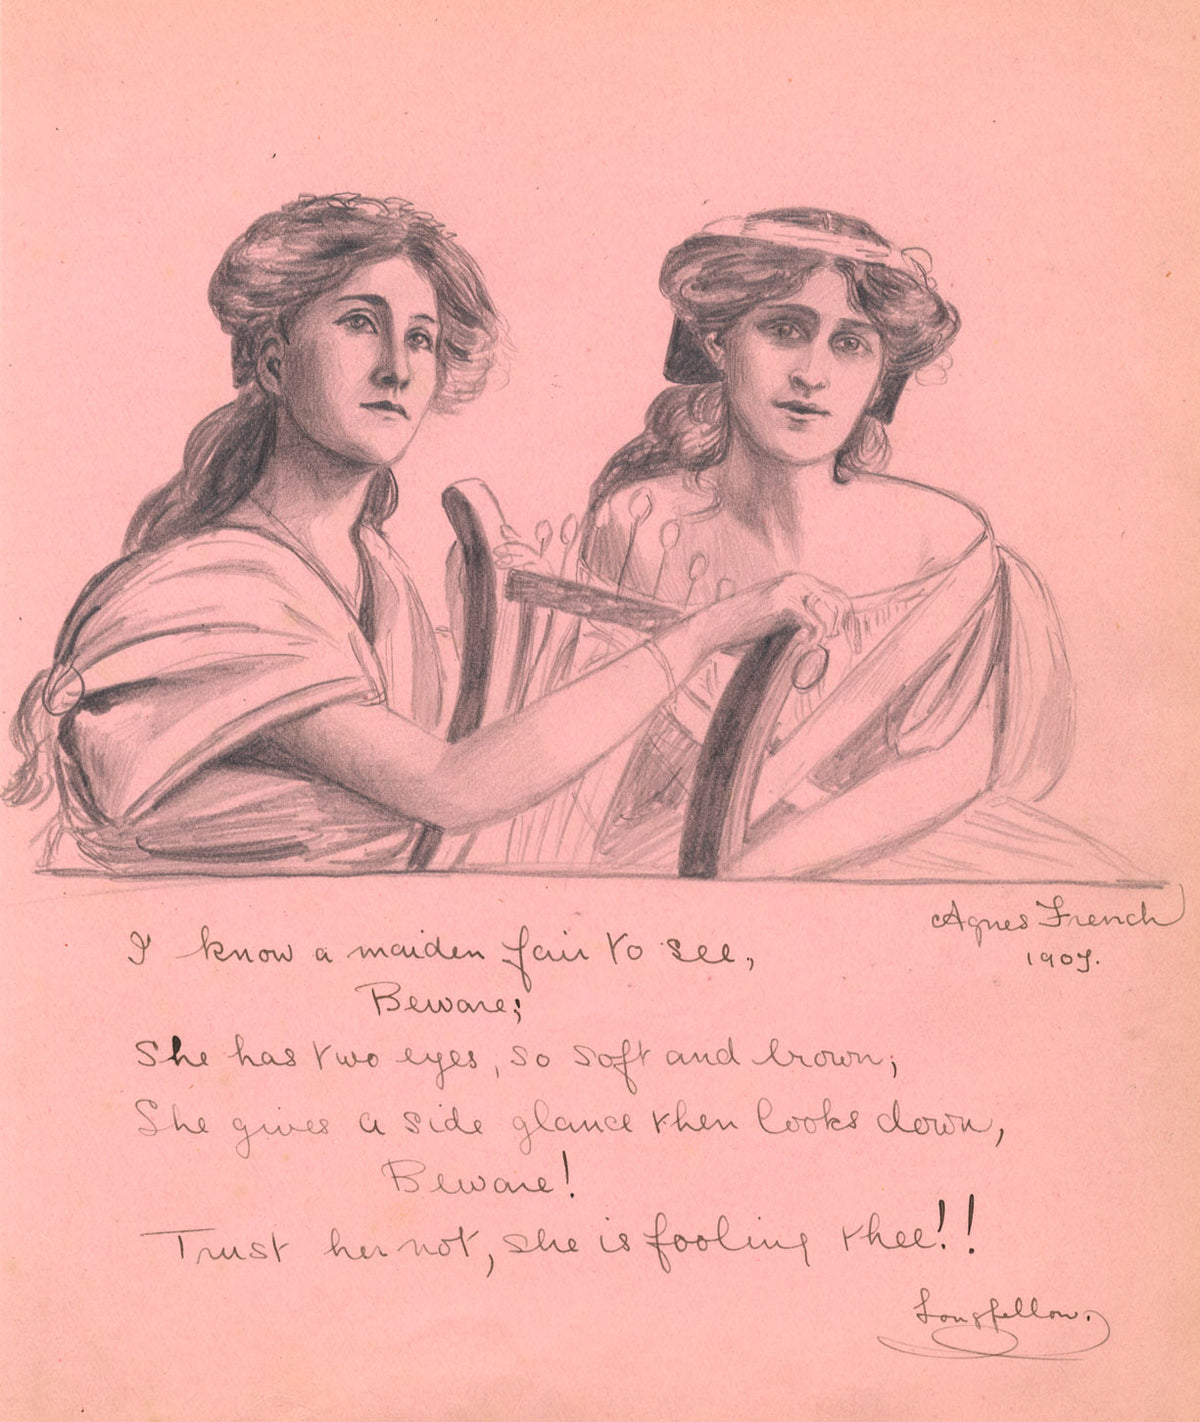 Agnes French
1907.
I know a maiden fair to see,
Beware;
She has two eyes, so soft and brown;
She gives a side glance then looks down,
Beware!
Trust her not, she is fooling thee!!
Longfellow.